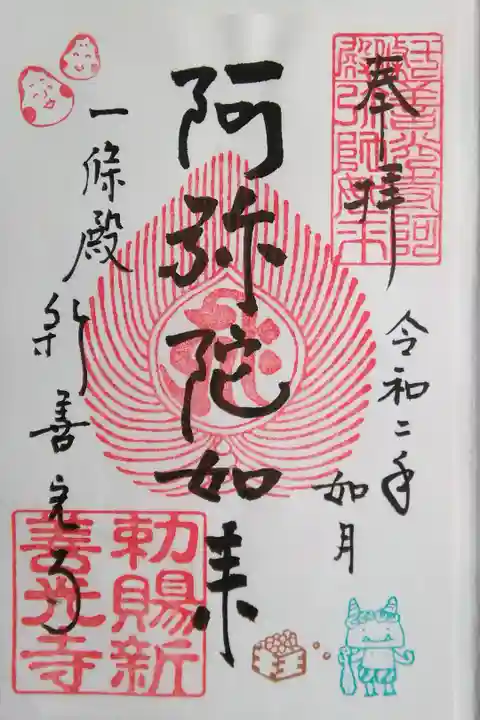 奉拝
令和二年
如月
阿弥陀如来
一條殿 新善光寺
勅賜新
善光寺